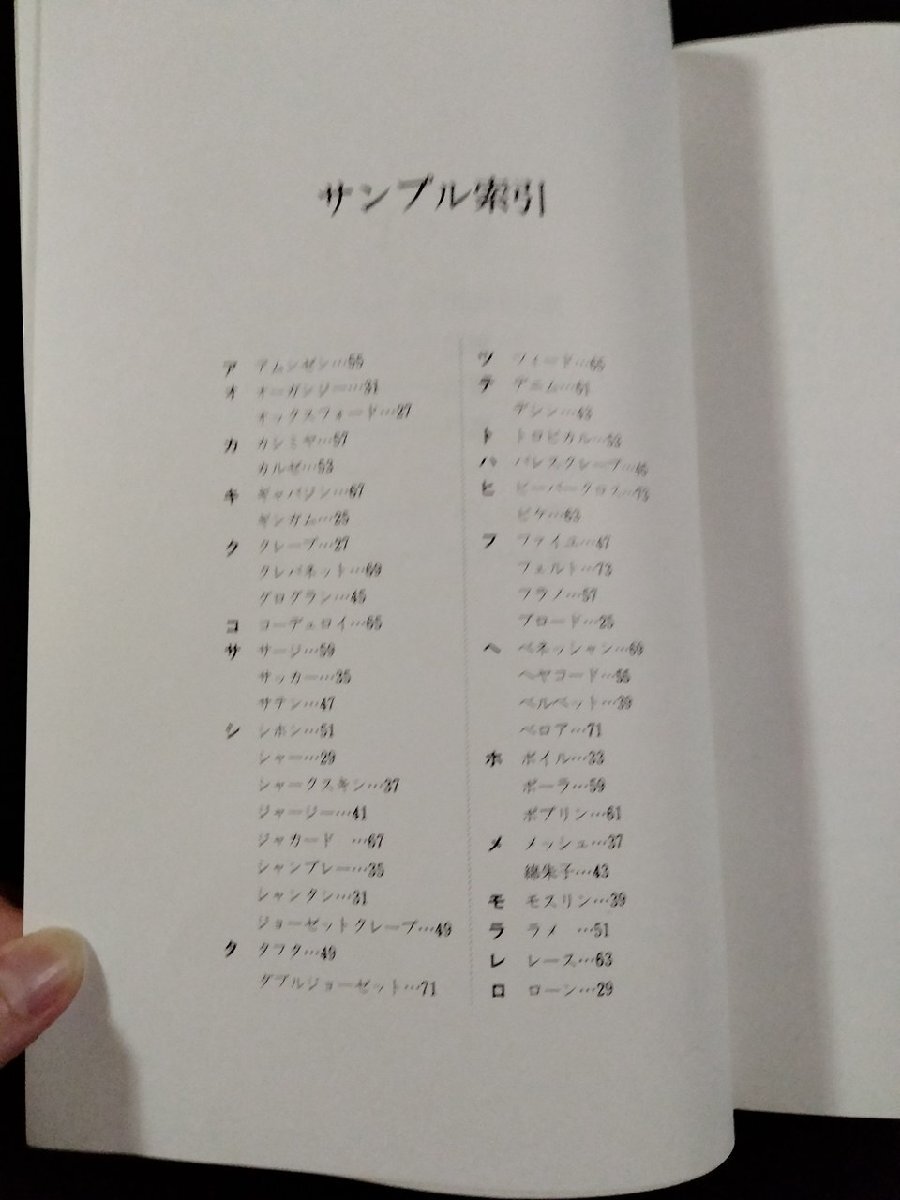 サンプル索引
ア アムンゼン…55
オ オーガンジー…31
オックスフォード…27
カ カシミヤ…57
カルゼ…53
キ ギャバジン…67
ギンガム…25
ク クレープ…27
クレバネット…69
グログラン…45
コ コーデュロイ…65
サ サージ…59
サッカー…35
サテン…47
シ シホン…51
シャー…29
シャークスキン…37
ジャージー…41
ジャカード …67
シャンブレー…35
シャンタン…31
ジョーゼットクレープ…49
タ タフタ…49
ダブルジョーゼット…71
ツ ツィード…65
テ デニム…61
デシン…43
ト トロピカル…53
ハ パレスクレープ…45
ヒ ビーバークロス…73
ピケ…63
フ ファイユ…47
フェルト…73
フラノ…57
ブロード…25
ヘ ベネッシャン…69
ヘヤコード…55
ベルベット…39
ベロア…71
ホ ボイル…33
ポーラ…59
ポプリン…61
メ メッシュ…37
綿朱子…43
モ モスリン…39
ラ ラメ …51
レ レース…63
ロ ローン…29